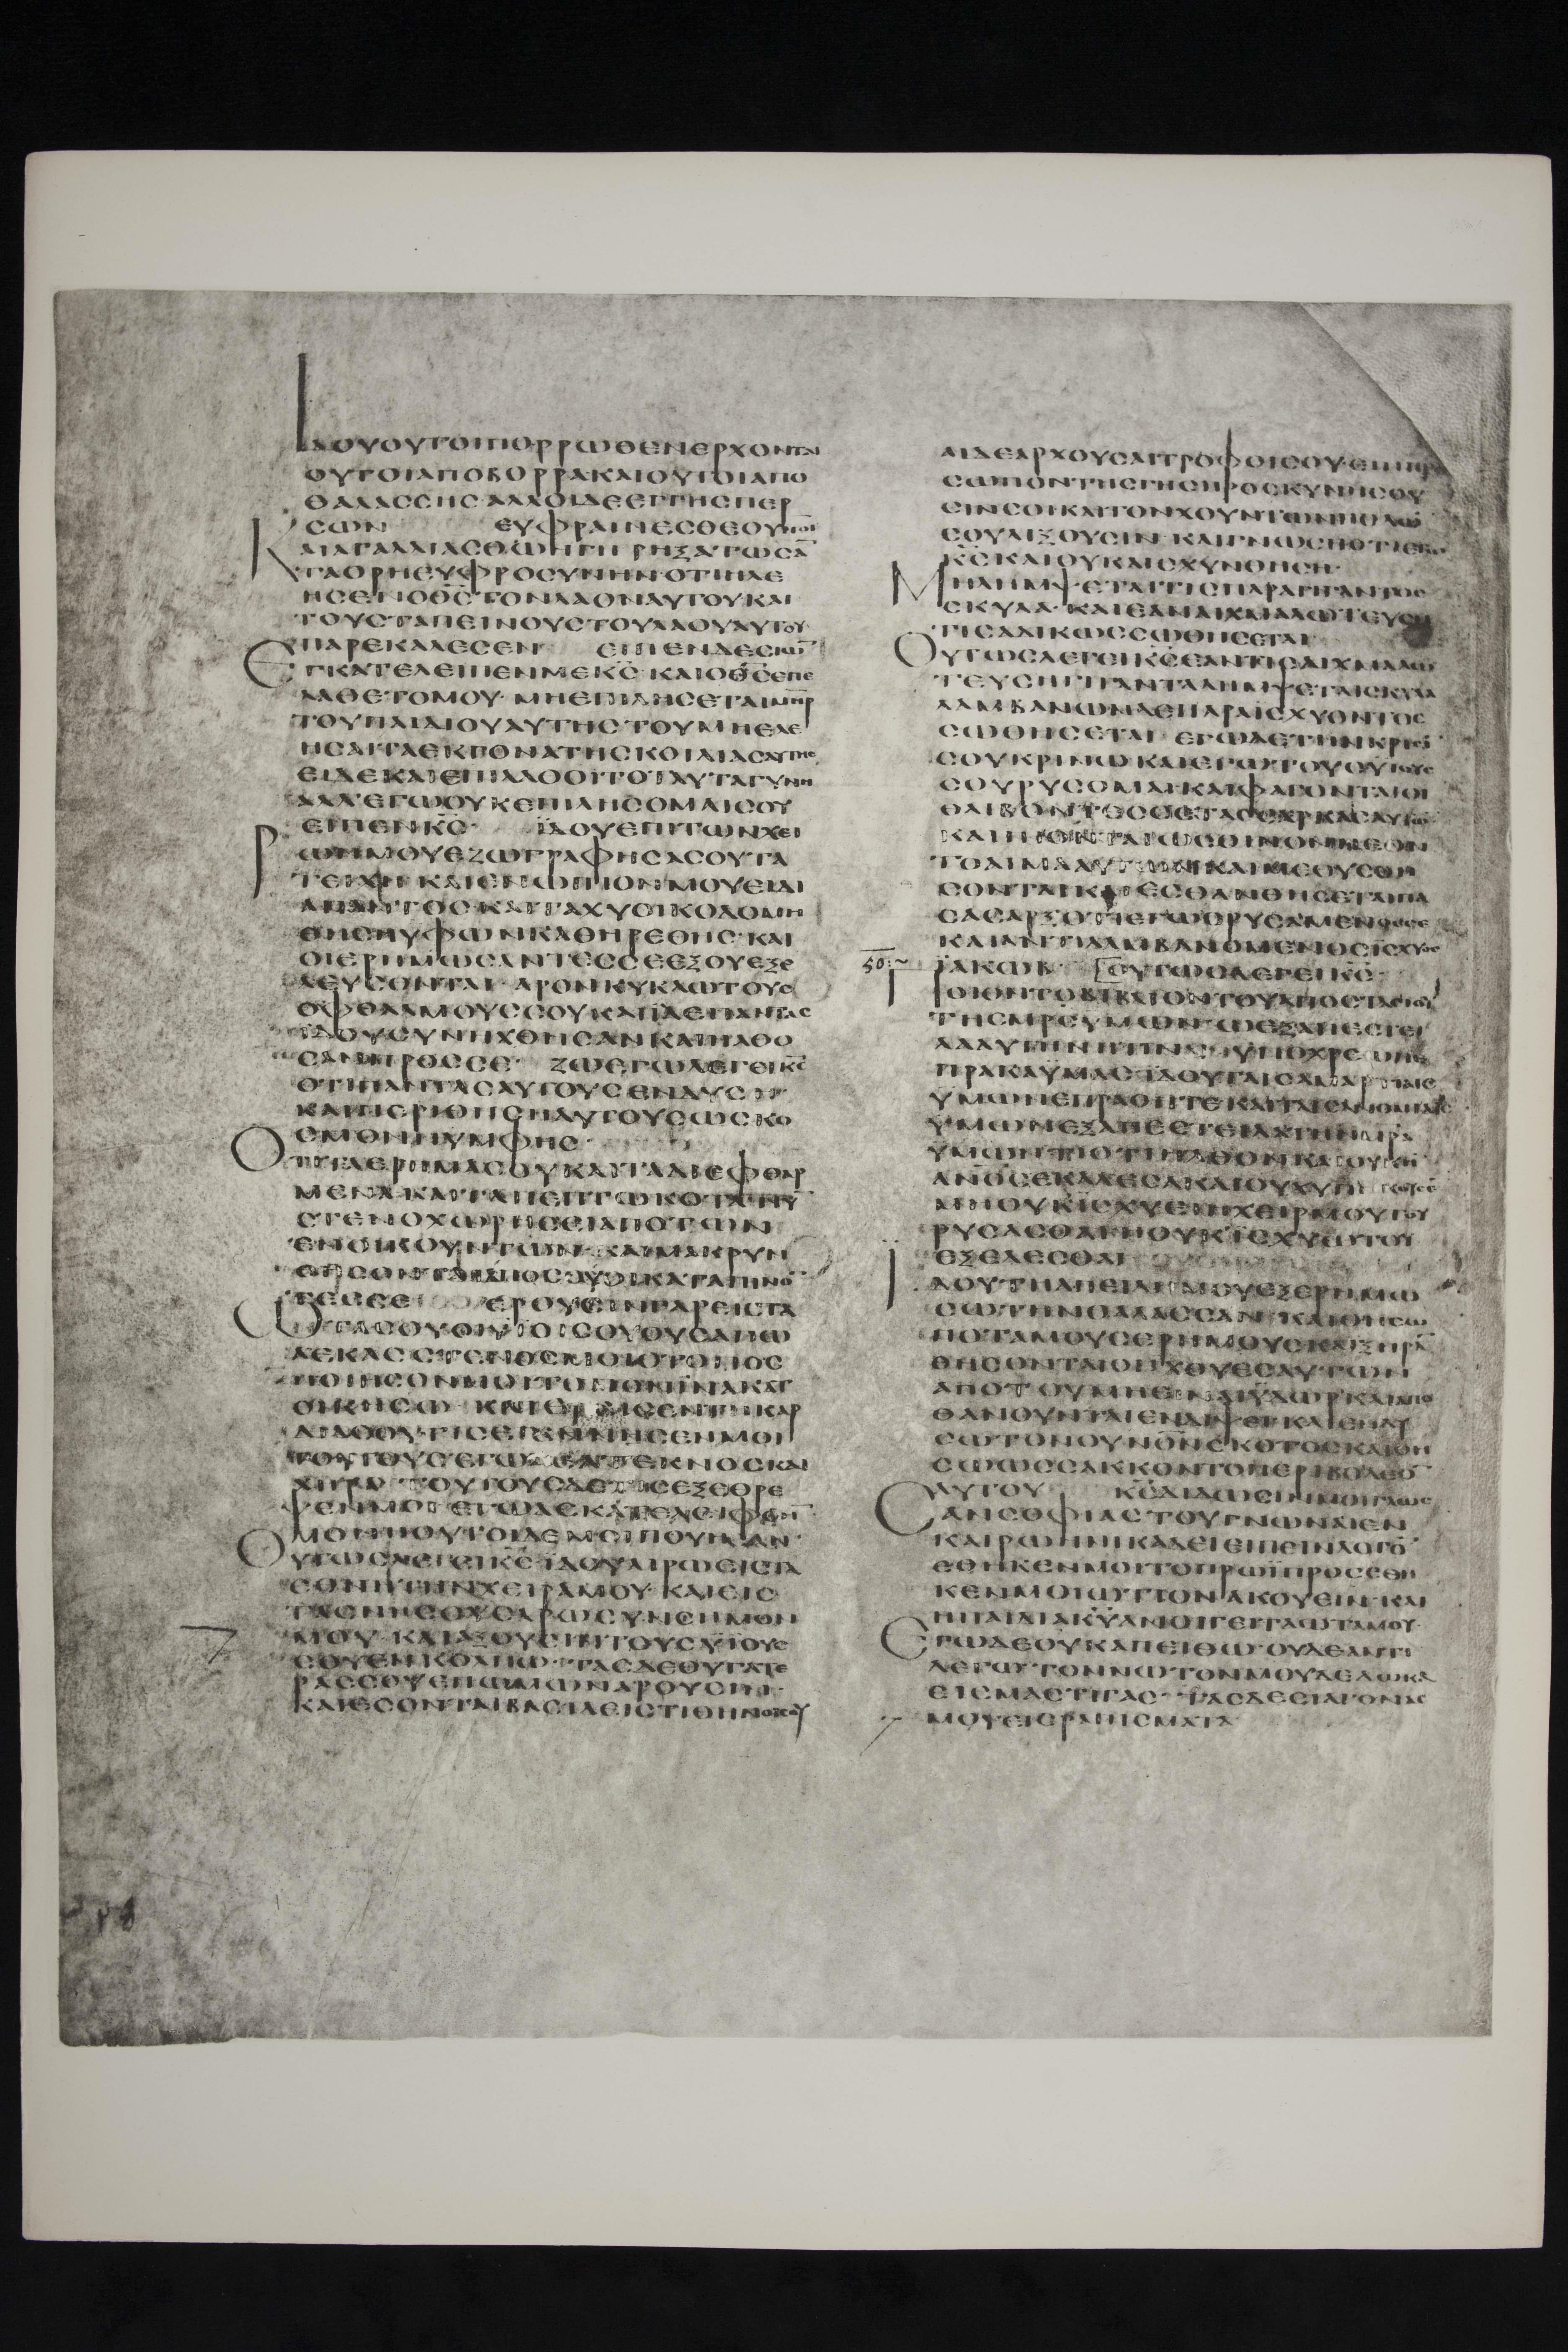 ΙΔΟΥΟΥΤΟΙΠΟΡΡΩΘΕΝΕΡΧΟΝΤΑΙ
ΟΥΤΟΙΑΠΟΒΟΡΡΑΚΑΙΟΥΤΟΙΑΠΟ
ΘΑΛΑϹϹΗϹΑΛΛΟΙΔΕΕΓΓΗϹΠΕΡ
ϹΩΝ ΕΥΦΡΑΙΝΕϹΘΕΟΥΝΟΙ
ΚΑΙΑΓΑΛΛΙΑϹΘΩΗΓΗ ΡΗΞΑΤΩϹΑ̅
ΤΑΟΡΗΕΥΦΡΟϹΥΝΗΝ·ΟΤΙΗΛΕ
ΗϹΕΝΟΘ̅Ϲ̅ΤΟΝΛΑΟΝΑΥΤΟΥΚΑΙ
ΤΟΥϹΤΑΠΕΙΝΟΥϹΤΟΥΛΑΟΥΑΥΤΟΥ
ΠΑΡΕΚΑΛΕϹΕΝ ΕΙΠΕΝΔΕϹΙΩ̅
ΕΓΚΑΤΕΛΕΙΠΕΝΜΕΚ̅Ϲ̅·ΚΑΙΟΘ̅Ϲ̅ΕΠΕ
ΛΑΘΕΤΟΜΟΥ·ΜΗΕΠΙΛΗϹΕΤΑΙΜ̅Η̅Ρ̅
ΤΟΥΠΑΙΔΙΟΥΑΥΤΗϹΤΟΥΜΗΕΛΕ
ΗϹΑΙΤΑΕΚΓΟΝΑΤΗϹΚΟΙΛΙΑϹΑΥΤΗϹ
ΕΙΔΕΚΑΙΕΠΙΛΑΘΟΙΤΟΤΑΥΤΑΓΥΝΗ
ΑΛΛΕΓΩΟΥΚΕΠΙΛΗϹΟΜΑΙϹΟΥ
ΕΙΠΕΝΚ̅Ϲ̅· ΪΔΟΥΕΠΙΤΩΝΧΕΙ
ΡΩΝΜΟΥΕΖΩΓΡΑΦΗϹΑϹΟΥΤΑ
ΤΕΙΧΗ·ΚΑΙΕΝΩΠΙΟΝΜΟΥΕΙΔΙ
ΑΠΑΝΤΟϹΚΑΙΤΑΧΥΟΙΚΟΔΟΜΗ
ΘΗϹΗΥΦΩΝΚΑΘΗΡΕΘΗϹ·ΚΑΙ
ΟΙΕΡΗΜΩϹΑΝΤΕϹϹΕΕΞΟΥΕΞΕ
ΛΕΥϹΟΝΤΑΙ·ΑΡΟΝΚΥΚΛΩΤΟΥϹ
ΟΦΘΑΛΜΟΥϹϹΟΥΚΑΙΪΔΕΠΑΝΤΑϹ
ΪΔΟΥϹΥΝΗΧΘΗϹΑΝΚΑΙΗΛΘΟ
ϹΑΝΠΡΟϹϹΕ· ΖΩΕΓΩΛΕΓΕΙΚ̅Ϲ̅
ΟΤΙΠΑΝΤΑϹΑΥΤΟΥϹΕΝΔΥϹΗ
ΚΑΙΠΕΡΙΘΗϹΗΑΥΤΟΥϹΩϹΚΟ
ϹΜΟΝΝΥΜΦΗϹ·
ΟΤΙΤΑΕΡΗΜΑϹΟΥΚΑΙΤΑΔΙΕΦΘΑΡ
ΜΕΝΑΚΑΙΤΑΠΕΠΤΩΚΟΤΑΝΥ̅
ϹΤΕΝΟΧΩΡΗϹΕΙΑΠΟΤΩΝ
ΕΝΟΙΚΟΥΝΤΩΝ·ΚΑΙΜΑΚΡΥΝ
ΘΗϹΟΝΤΑΙΑΠΟϹΟΥΟΙΚΑΤΑΠΙΝΟ̅
ΤΕϹϹΕ ΕΡΟΥϹΙΝΓΑΡΕΙϹΤΑ
ΩΤΑϹΟΥΟΙΥΙΟΙϹΟΥΟΥϹΑΠΩ
ΛΕΚΑϹϹΤΕΝΟϹΜΟΙΟΤΟΠΟϹ
ΠΟΙΗϹΟΝΜΟΙΤΟΠΟΝΪΝΑΚΑΤ
ΟΙΚΗϹΩ ΚΑΙΕΡΕΙϹΕΝΤΗΚΑΡ
ΔΙΑϹΟΥ·ΤΙϹΕΓΕΝΝΗϹΕΝΜΟΙ
ΤΟΥΤΟΥϹΕΓΩΔΕΑΤΕΚΝΟϹΚΑΙ
ΧΗΡΑ ΤΟΥΤΟΥϹΔΕΤΙϹΕΞΕΘΡΕ
ΨΕΝΜΟΙ ΕΓΩΔΕΚΑΤΕΛΕΙΦΘΗ̅
ΜΟΝΗΟΥΤΟΙΔΕΜΟΙΠΟΥΗϹΑΝ·
ΟΥΤΩϹΛΕΓΕΙΚ̅Ϲ̅·ΪΔΟΥΑΙΡΩΕΙϹΤΑ
ΕΘΝΗΤΗΝΧΕΙΡΑΜΟΥ·ΚΑΙΕΙϹ
ΤΑϹΝΗϹΟΥϹΑΡΩϹΥϹϹΗΜΟΝ
ΜΟΥ·ΚΑΙΑΞΟΥϹΙΝΤΟΥϹΥΪΟΥϹ
ϹΟΥΕΝΚΟΛΠΩ·ΤΑϹΔΕΘΥΓΑΤΕ
ΡΑϹϹΟΥΕΠΩΜΩΝΑΡΟΥϹΙΝ·
ΚΑΙΕϹΟΝΤΑΙΒΑϹΙΛΕΙϹΤΙΘΗΝΟΙϹΟΥ
ΑΙΔΕΑΡΧΟΥϹΑΙΤΡΟΦΟΙϹΟΥ·ΕΠΙΠΡΟ
ϹΩΠΟΝΤΗϹΓΗϹΠΡΟϹΚΥΝΗϹΟΥ
ϹΙΝϹΟΙΚΑΙΤΟΝΧΟΥΝΤΩΝΠΟΔΩ̅
ϹΟΥΛΙΞΟΥϹΙΝ·ΚΑΙΓΝΩϹΗΟΤΙΕΓΩ
Κ̅Ϲ̅ΚΑΙΟΥΚΑΙϹΧΥΝΘΗϹΗ·
ΜΗΛΗΜΨΕΤΑΙΤΙϹΠΑΡΑΓΙΓΑΝΤΟϹ
ϹΚΥΛΑ·ΚΑΙΕΑΝΑΙΧΜΑΛΩΤΕΥϹΗ
ΤΙϹΑΔΙΚΩϹϹΩΘΗϹΕΤΑΙ
ΟΥΤΩϹΛΕΓΕΙΚ̅Ϲ̅ΕΑΝΤΙϹΑΙΧΜΑΛΩ
ΤΕΥϹΗΓΙΓΑΝΤΑΛΗΜΨΕΤΑΙϹΚΥΛΑ
ΛΑΜΒΑΝΩΝΔΕΠΑΡΑΙϹΧΥΟΝΤΟϹ
ϹΩΘΗϹΕΤΑΙ ΕΓΩΔΕΤΗΝΚΡΙϹΙ̅
ϹΟΥΚΡΙΝΩΚΑΙΕΓΩΤΟΥϹΥΙΟΥϹ
ϹΟΥΡΥϹΟΜΑΙ·ΚΑΙΦΑΓΟΝΤΑΙΟΙ
ΘΛΙΒΟΝΤΕϹϹΕΤΑϹϹΑΡΚΑϹΑΥΤΩ̅
ΚΑΙΠΙΟΝΤΑΙΩϹΟΙΝΟΝΝΕΟΝ
ΤΟΑΙΜΑΑΥΤΩΝΚΑΙΜΕΘΥϹΘΗ
ϹΟΝΤΑΙΚΑΙΕϹΘΑΝΘΗϹΕΤΑΙΠΑ
ϹΑϹΑΡΞΟΤΙΕΓΩΟΡΥϹΑΜΕΝΟϹϹΕ
ΚΑΙΑΝΤΙΛΑΜΒΑΝΟΜΕΝΟϹΪϹΧΥΟϹ
50:~ ΪΑΚΩΒ· ΟΥΤΩϹΛΕΓΕΙΚ̅Ϲ̅·
ΠΟΙΟΝΤΟΒΙΒΛΙΟΝΤΟΥΑΠΟϹΤΑϹΙΟΥ
ΤΗϹΜ̅Ρ̅Ϲ̅ΥΜΩΝ·ΩΕΞΑΠΕϹΤΕΙ
ΛΑΑΥΤΗΝΗΤΙΝΙΫΠΟΧΡΕΩΠΕ
ΠΡΑΚΑΫΜΑϹ·ΪΔΟΥΤΑΙϹΑΜΑΡΤΙΑΙϹ
ΫΜΩΝΕΠΡΑΘΗΤΕΚΑΙΤΑΙϹΑΝΟΜΙΑΙϹ
ΫΜΩΝΕΞΑΠΕϹΤΕΙΛΑΤΗΝΜ̅Ρ̅Α̅
ΫΜΩΝΤΙΟΤΙΗΛΘΟΝΚΑΙΟΥΚΗΝ
ΑΝ̅Ο̅Ϲ̅ΕΚΑΛΕϹΑΚΑΙΟΥΧΥΠΗΚΟΥϹΕ̅
ΜΗΟΥΚΪϹΧΥΕΙΗΧΕΙΡΜΟΥΤΟΥ
ΡΥϹΑϹΘΑΙΗΟΥΚΪϹΧΥΩΤΟΥ
ΕΞΕΛΕϹΘΑΙ
ΙΔΟΥΤΗΑΠΕΙΛΗΜΟΥΕΞΕΡΗΜΩ
ϹΩΤΗΝΘΑΛΑϹϹΑΝ·ΚΑΙΘΗϹΩ
ΠΟΤΑΜΟΥϹΕΡΗΜΟΥϹΚΑΙΞΗΡΑ̅
ΘΗϹΟΝΤΑΙΟΙΙΧΘΥΕϹΑΥΤΩΝ
ΑΠΟΤΟΥΜΗΕΙΝΑΙΫΔΩΡΚΑΙΑΠΟ
ΘΑΝΟΥΝΤΑΙΕΝΔΙΨΕΙ·ΚΑΙΕΝΔΥ
ϹΩΤΟΝΟΥΝΟΝϹΚΟΤΟϹΚΑΙΘΗ
ϹΩΩϹϹΑΚΚΟΝΤΟΠΕΡΙΒΟΛΕΟ̅
ΑΥΤΟΥ Κ̅Ϲ̅ΔΙΔΩϹΙΝΜΟΙΓΛΩϹ
ϹΑΝϹΟΦΙΑϹΤΟΥΓΝΩΝΑΙΕΝ
ΚΑΙΡΩΗΝΙΚΑΔΕΙΕΙΠΕΙΝΛΟΓΟ̅
ΕΘΗΚΕΝΜΟΙΤΟΠΡΩΪΠΡΟϹΕΘΗ
ΚΕΝΜΟΙΩΤΙΟΝΑΚΟΥΕΙΝ·ΚΑΙ
ΗΠΑΙΔΙΑΚΫΑΝΟΙΓΕΙΤΑΩΤΑΜΟΥ·
ΕΓΩΔΕΟΥΚΑΠΕΙΘΩ·ΟΥΔΕΑΝΤΙ
ΛΕΓΩ·ΤΟΝΝΩΤΟΝΜΟΥΔΕΔΩΚΑ
ΕΙϹΜΑϹΤΙΓΑϹ·ΤΑϹΔΕϹΙΑΓΟΝΑϹ
ΜΟΥΕΙϹΡΑΠΙϹΜΑΤΑ